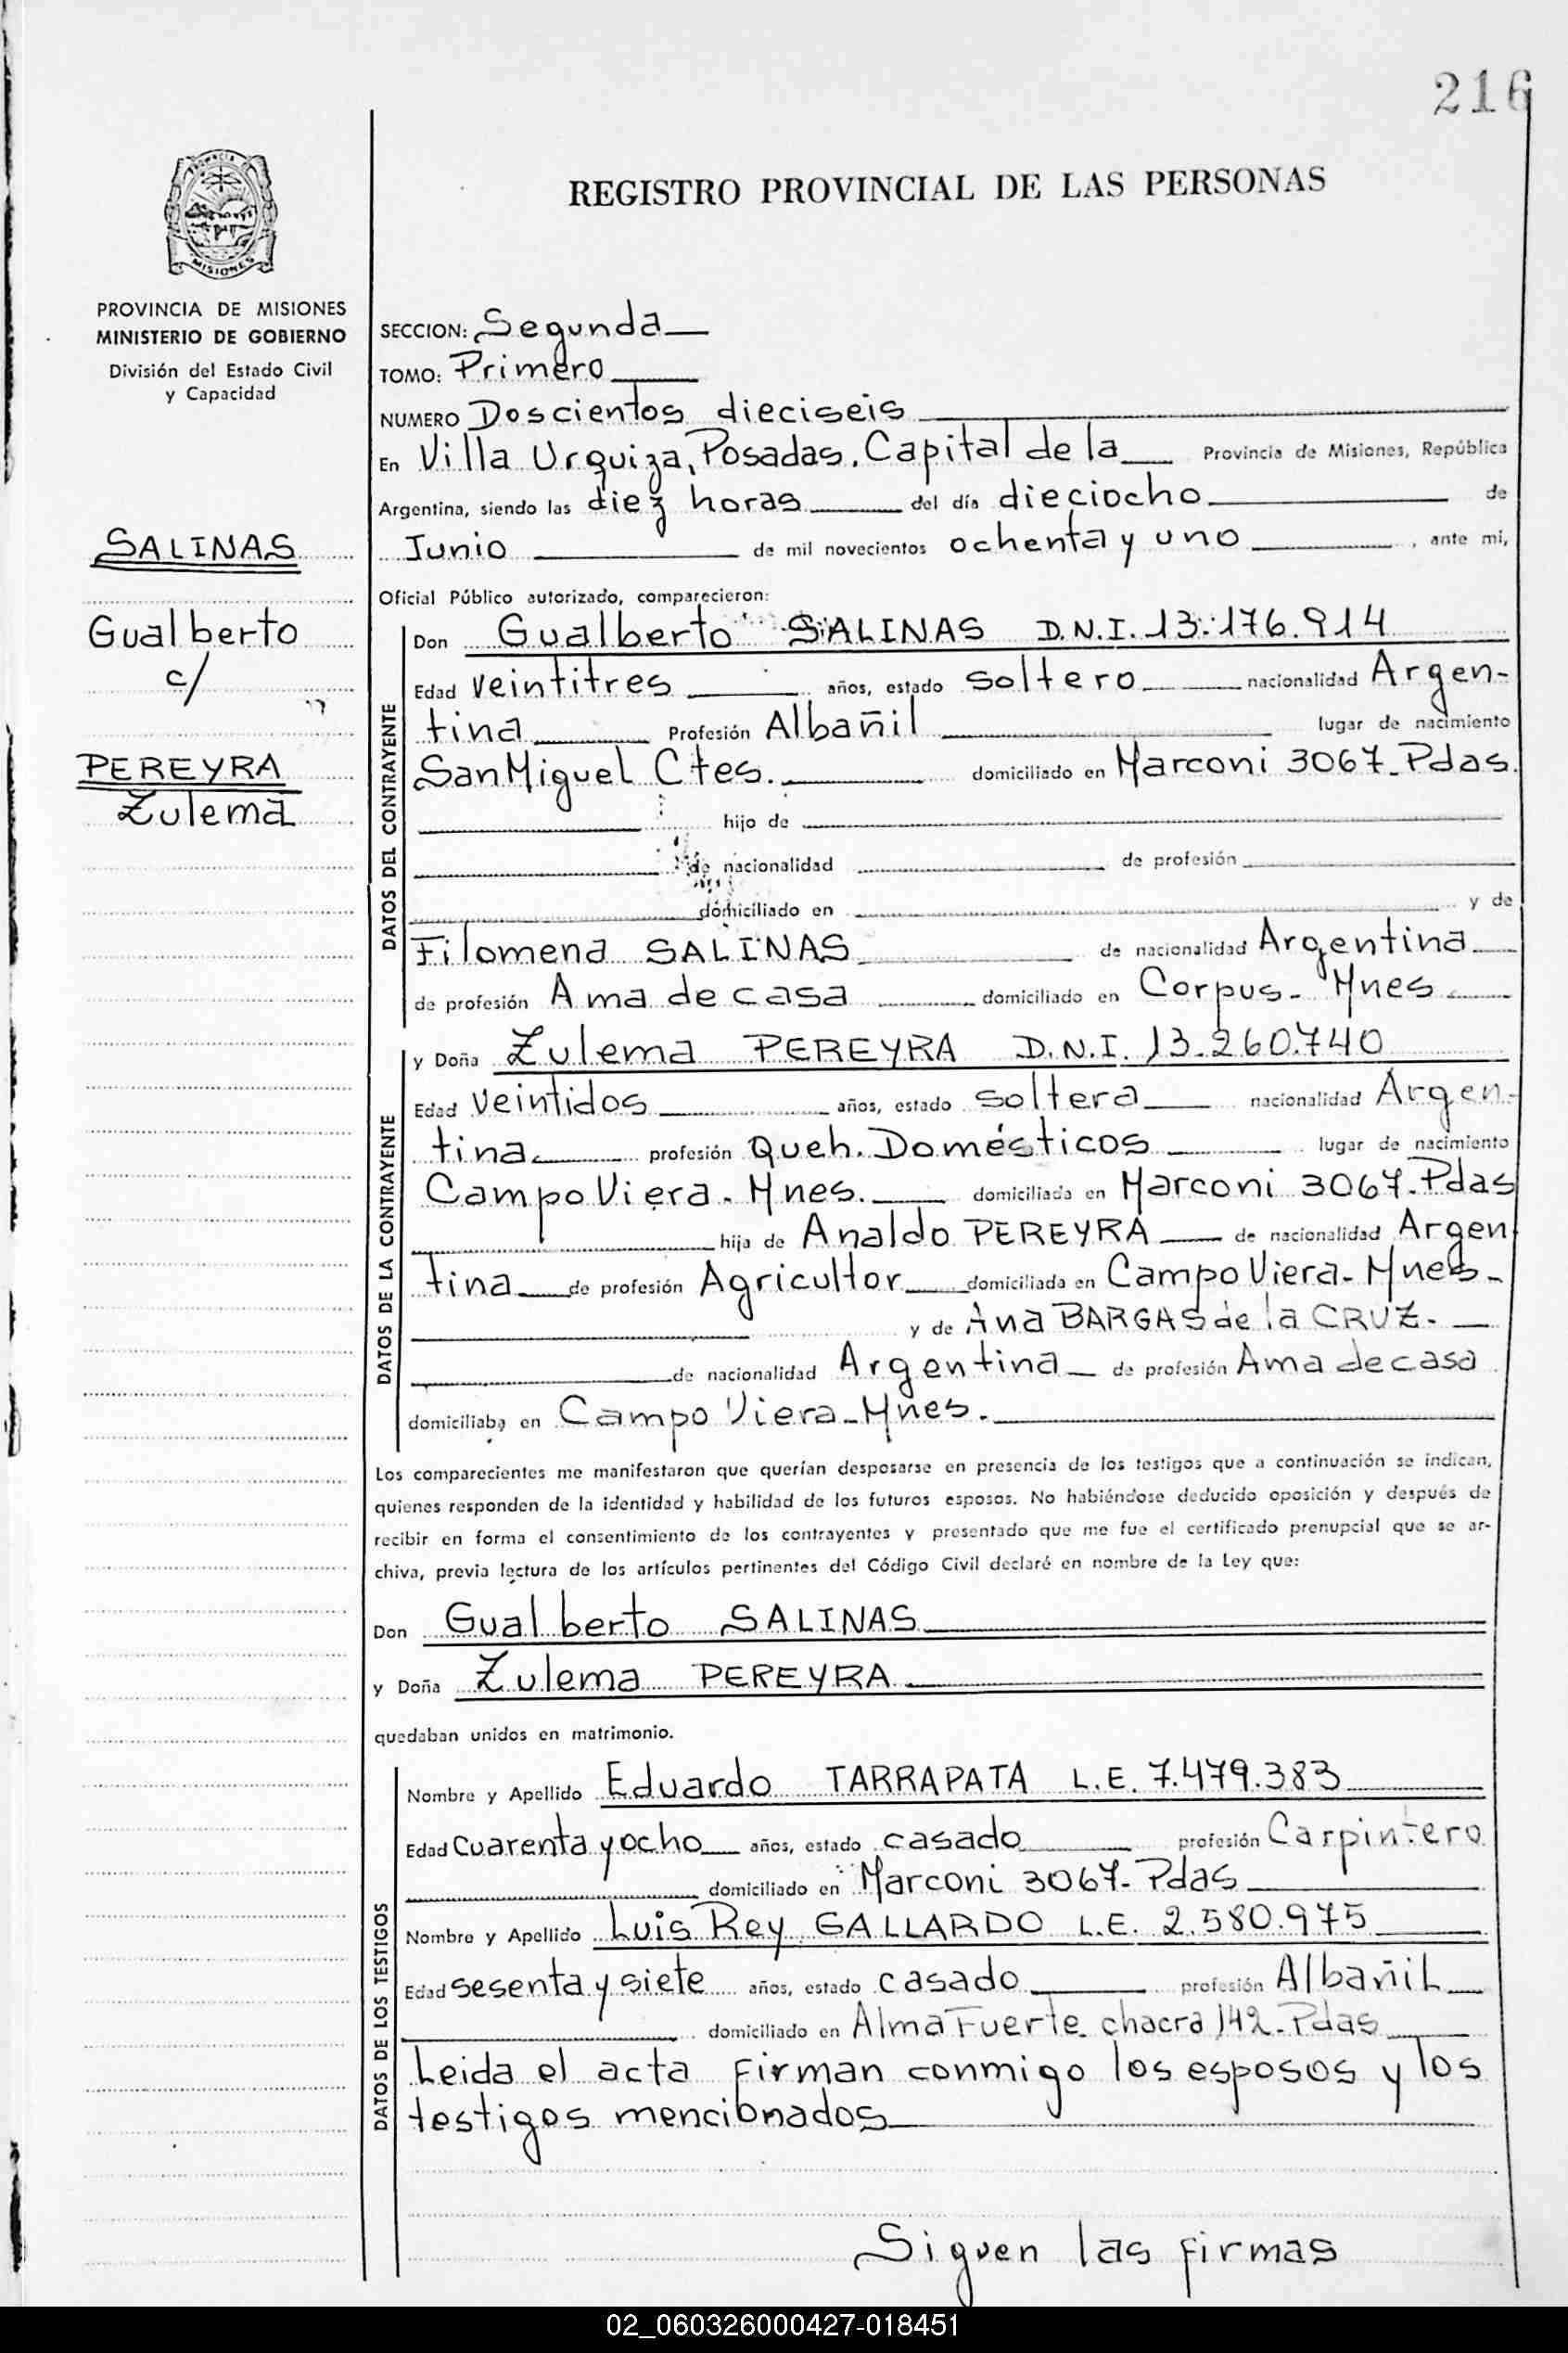 216
PROVINCIA
MISIONES
PROVINCIA DE MISIONES
MINISTERIO DE GOBIERNO
División del Estado Civil
y Capacidad
SALINAS
Gualberto
c/
PEREYRA
Zulema
REGISTRO PROVINCIAL DE LAS PERSONAS
SECCION: Segunda
TOMO: Primero
NUMERO Doscientos dieciseis
En Villa Urquiza, Posadas, Capital de la Provincia de Misiones, República
Argentina, siendo las diez horas del día dieciocho de
Junio de mil novecientos ochenta y uno, ante mi,
Oficial Público autorizado, comparecieron:
DATOS DEL CONTRAYENTE
Don Gualberto SALINAS D.N.I. 13.176.914
Edad veintitres años, estado soltero nacionalidad Argen-
tina Profesión Albañil lugar de nacimiento
San Miguel Ctes. domiciliado en Marconi 3067-Pdas.
hijo de
de nacionalidad de profesión
domiciliado en y de
Filomena SALINAS de nacionalidad Argentina
de profesión Ama de casa domiciliado en Corpus - Mnes
DATOS DE LA CONTRAYENTE
y Doña Zulema PEREYRA D.N.I. 13.260.740
Edad veintidos años, estado soltera nacionalidad Argen-
tina profesión Queh. Domésticos lugar de nacimiento
Campo Viera - Mnes. domiciliada en Marconi 3067-Pdas
hija de Analdo PEREYRA de nacionalidad Argen
tina de profesión Agricultor domiciliada en Campo Viera - Mnes -
y de Ana BARGAS de la CRUZ.
de nacionalidad Argentina de profesión Ama de casa
domiciliaba en Campo Viera - Mnes.
Los comparecientes me manifestaron que querían desposarse en presencia de los testigos que a continuación se indican,
quienes responden de la identidad y habilidad de los futuros esposos. No habiéndose deducido oposición y después de
recibir en forma el consentimiento de los contrayentes y presentado que me fue el certificado prenupcial que se ar-
chiva, previa lectura de los artículos pertinentes del Código Civil declaré en nombre de la Ley que:
Don Gualberto SALINAS
y Doña Zulema PEREYRA
quedaban unidos en matrimonio.
DATOS DE LOS TESTIGOS
Nombre y Apellido Eduardo TARRAPATA L.E. 7.479.383
Edad cuarenta y ocho años, estado casado profesión Carpintero
domiciliado en Marconi 3067- Pdas
Nombre y Apellido Luis Rey GALLARDO L.E. 2.580.975
Edad sesenta y siete años, estado casado profesión Albañil
domiciliado en Alma Fuerte chacra 142-Pdas
Leida el acta firman conmigo los esposos y los
testigos mencionados
Siguen las firmas
02_060326000427-018451